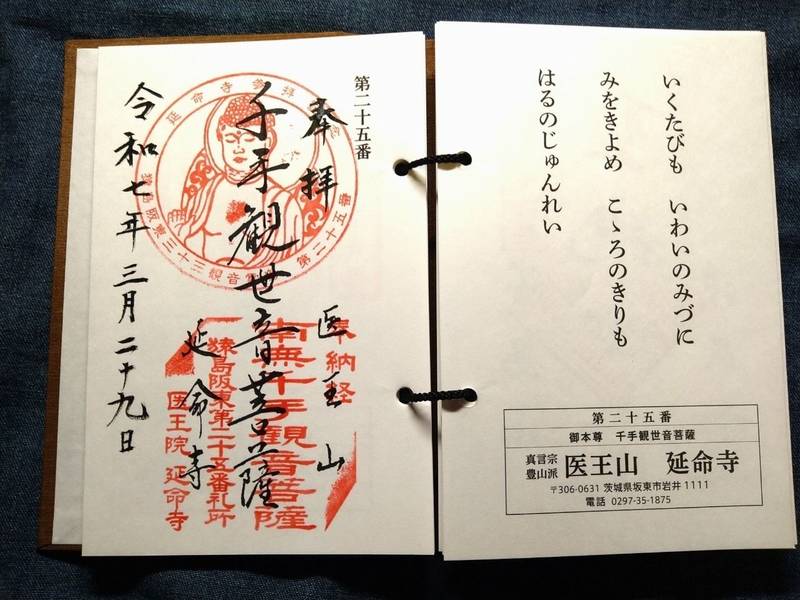 いくたびも　いわいのみづに
みをきよめ　こゝろのきりも
はるのじゅんれい
第二十五番
御本尊　千手観世音菩薩
真言宗
豊山派
医王山　延命寺
〒306-0631 茨城県坂東市岩井 1111
電話　0297-35-1875
第二十五番
奉拝
医王山
千手観世音菩薩
延命寺
令和七年三月二十九日
奉納経
南無千手観音菩薩
猿島阪東第二十五番札所
医王院 延命寺
第二十五番